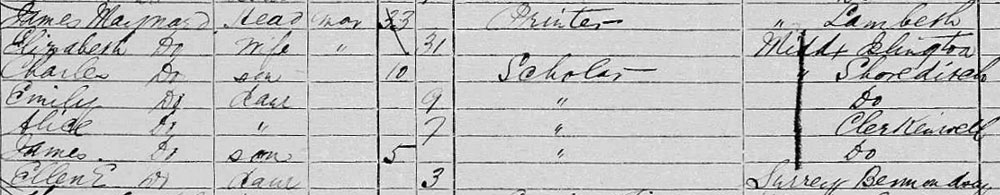 James Maynard Head Mar 33 Printer " Lambeth
Elizabeth Do Wife " 31 Middx Islington
Charles Do son 10 Scholar " Shoreditch
Emily Do daur 9 " Do
Alice Do " 7 " Clerkenwell
James. Do son 5 " Do
Ellen E Do daur 3 Surrey Bermondsey